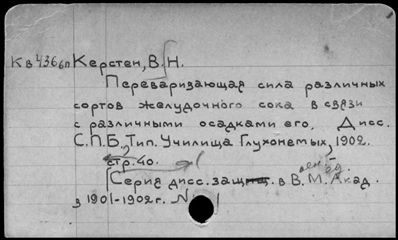 Кв436бп Керстен, В. Н.
Переваривающая сила различных
сортов желудочного сока в связи
с различными осадками его. Дисс.
С.П.Б., Тип. Училища Глухонемых, 1902.
стр. 40.
Серия дисс. защ. в В. М. Акад.
в 1901-1902 г. №